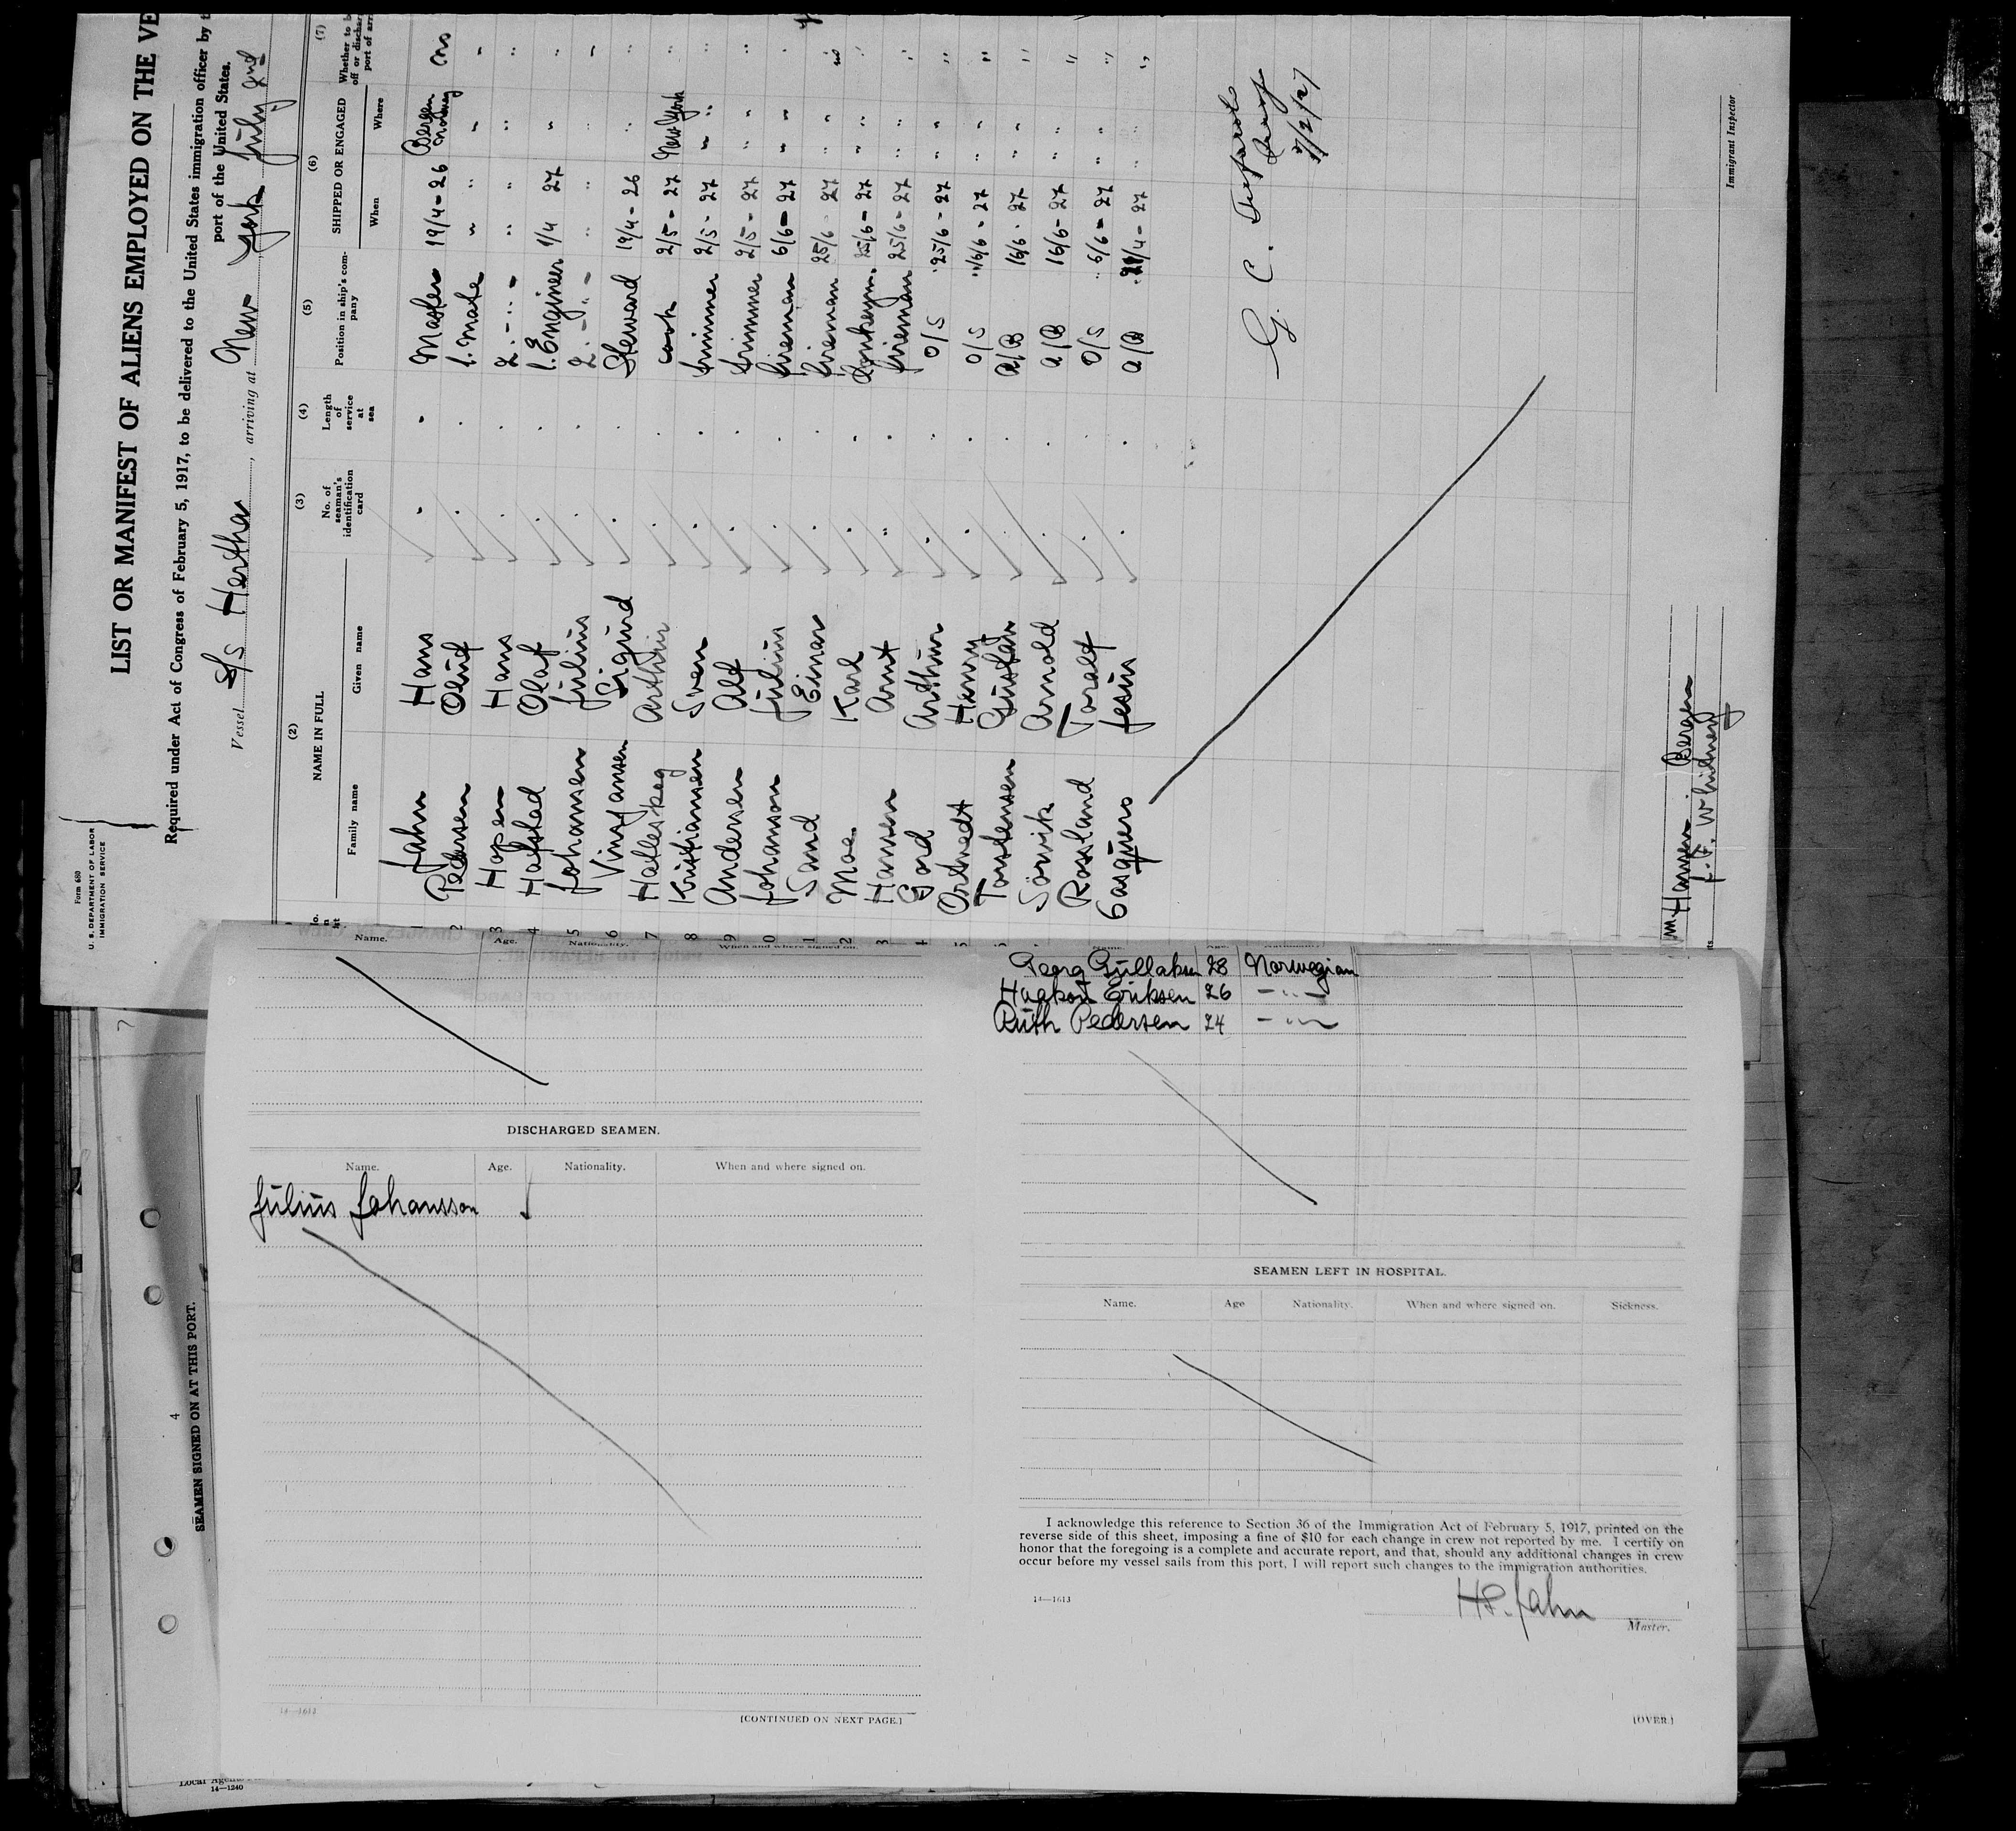 Form 680
U. S. DEPARTMENT OF LABOR
IMMIGRATION SERVICE
LIST OR MANIFEST OF ALIENS EMPLOYED ON THE VE
Required under Act of Congress of February 5, 1917, to be delivered to the United States immigration officer by t
port of the United States.
Vessel S/S Hertha, arriving at New York July 2nd
(2) (3) (4) (5) (6) (7)
NAME IN FULL No. of seaman's identification card Length of service at sea Position in ship's company SHIPPED OR ENGAGED Whether to b
off or dischar
port of arri
Family name Given name When Where
1 Jahn Hans Master 19/4-26 Bergen Norway no
2 Pedersen Oluf 1. Mate " " "
3 Hopen Hans 2. -"- " " "
4 Hafstad Olaf 1. Engineer 1/4 27 " "
5 Johannsen Julius 2. -"- "
6 Vingjansen Sigurd Steward 19/4-26 " "
7 Halleskog Arthur cook 2/5-27 New York "
8 Kristiansen Sven trimmer 2/5-27 " " "
9 Andersen Alf trimmer 2/5-27 " " "
0 Johanson Julius fireman 6/6-27 " " "
1 Sand Einar fireman 25/6-27 " " no
2 Moe Karl Donkeym. 25/6-27 " " "
3 Hansen Arnt fireman 25/6-27 " " "
4 Gord Arthur O/S 25/6-27 " " "
5 Ortvedt Harry O/S 16/6-27 " " "
Torstensen Gustav A/B 16/6-27 " " "
Sörvik Arnold A/B 16/6-27 " " "
Rossland Toralf O/S 6/6-27 " " "
Casquero Jesus A/B 21/4-27 " " "
G. C.
7/2/27
Immigrant Inspector
Hansen Bergen
J. F. Whitney
Name. Age. Nationality. When and where signed on.
DISCHARGED SEAMEN.
Name. Age. Nationality. When and where signed on.
Julius Johansson
14—1613
[CONTINUED ON NEXT PAGE.]
Georg Gullaksen 28 Norwegian
Haakon Eriksen 26 -"-
Ruth Pedersen 24 -"-
SEAMEN LEFT IN HOSPITAL.
Name. Age Nationality. When and where signed on. Sickness.
I acknowledge this reference to Section 36 of the Immigration Act of February 5, 1917, printed on the
reverse side of this sheet, imposing a fine of $10 for each change in crew not reported by me. I certify on
honor that the foregoing is a complete and accurate report, and that, should any additional changes in crew
occur before my vessel sails from this port, I will report such changes to the immigration authorities.
14—1613
H. P. Jahn
Master.
[OVER.]
4
SEAMEN SIGNED ON AT THIS PORT.
Local Agent
14—1240